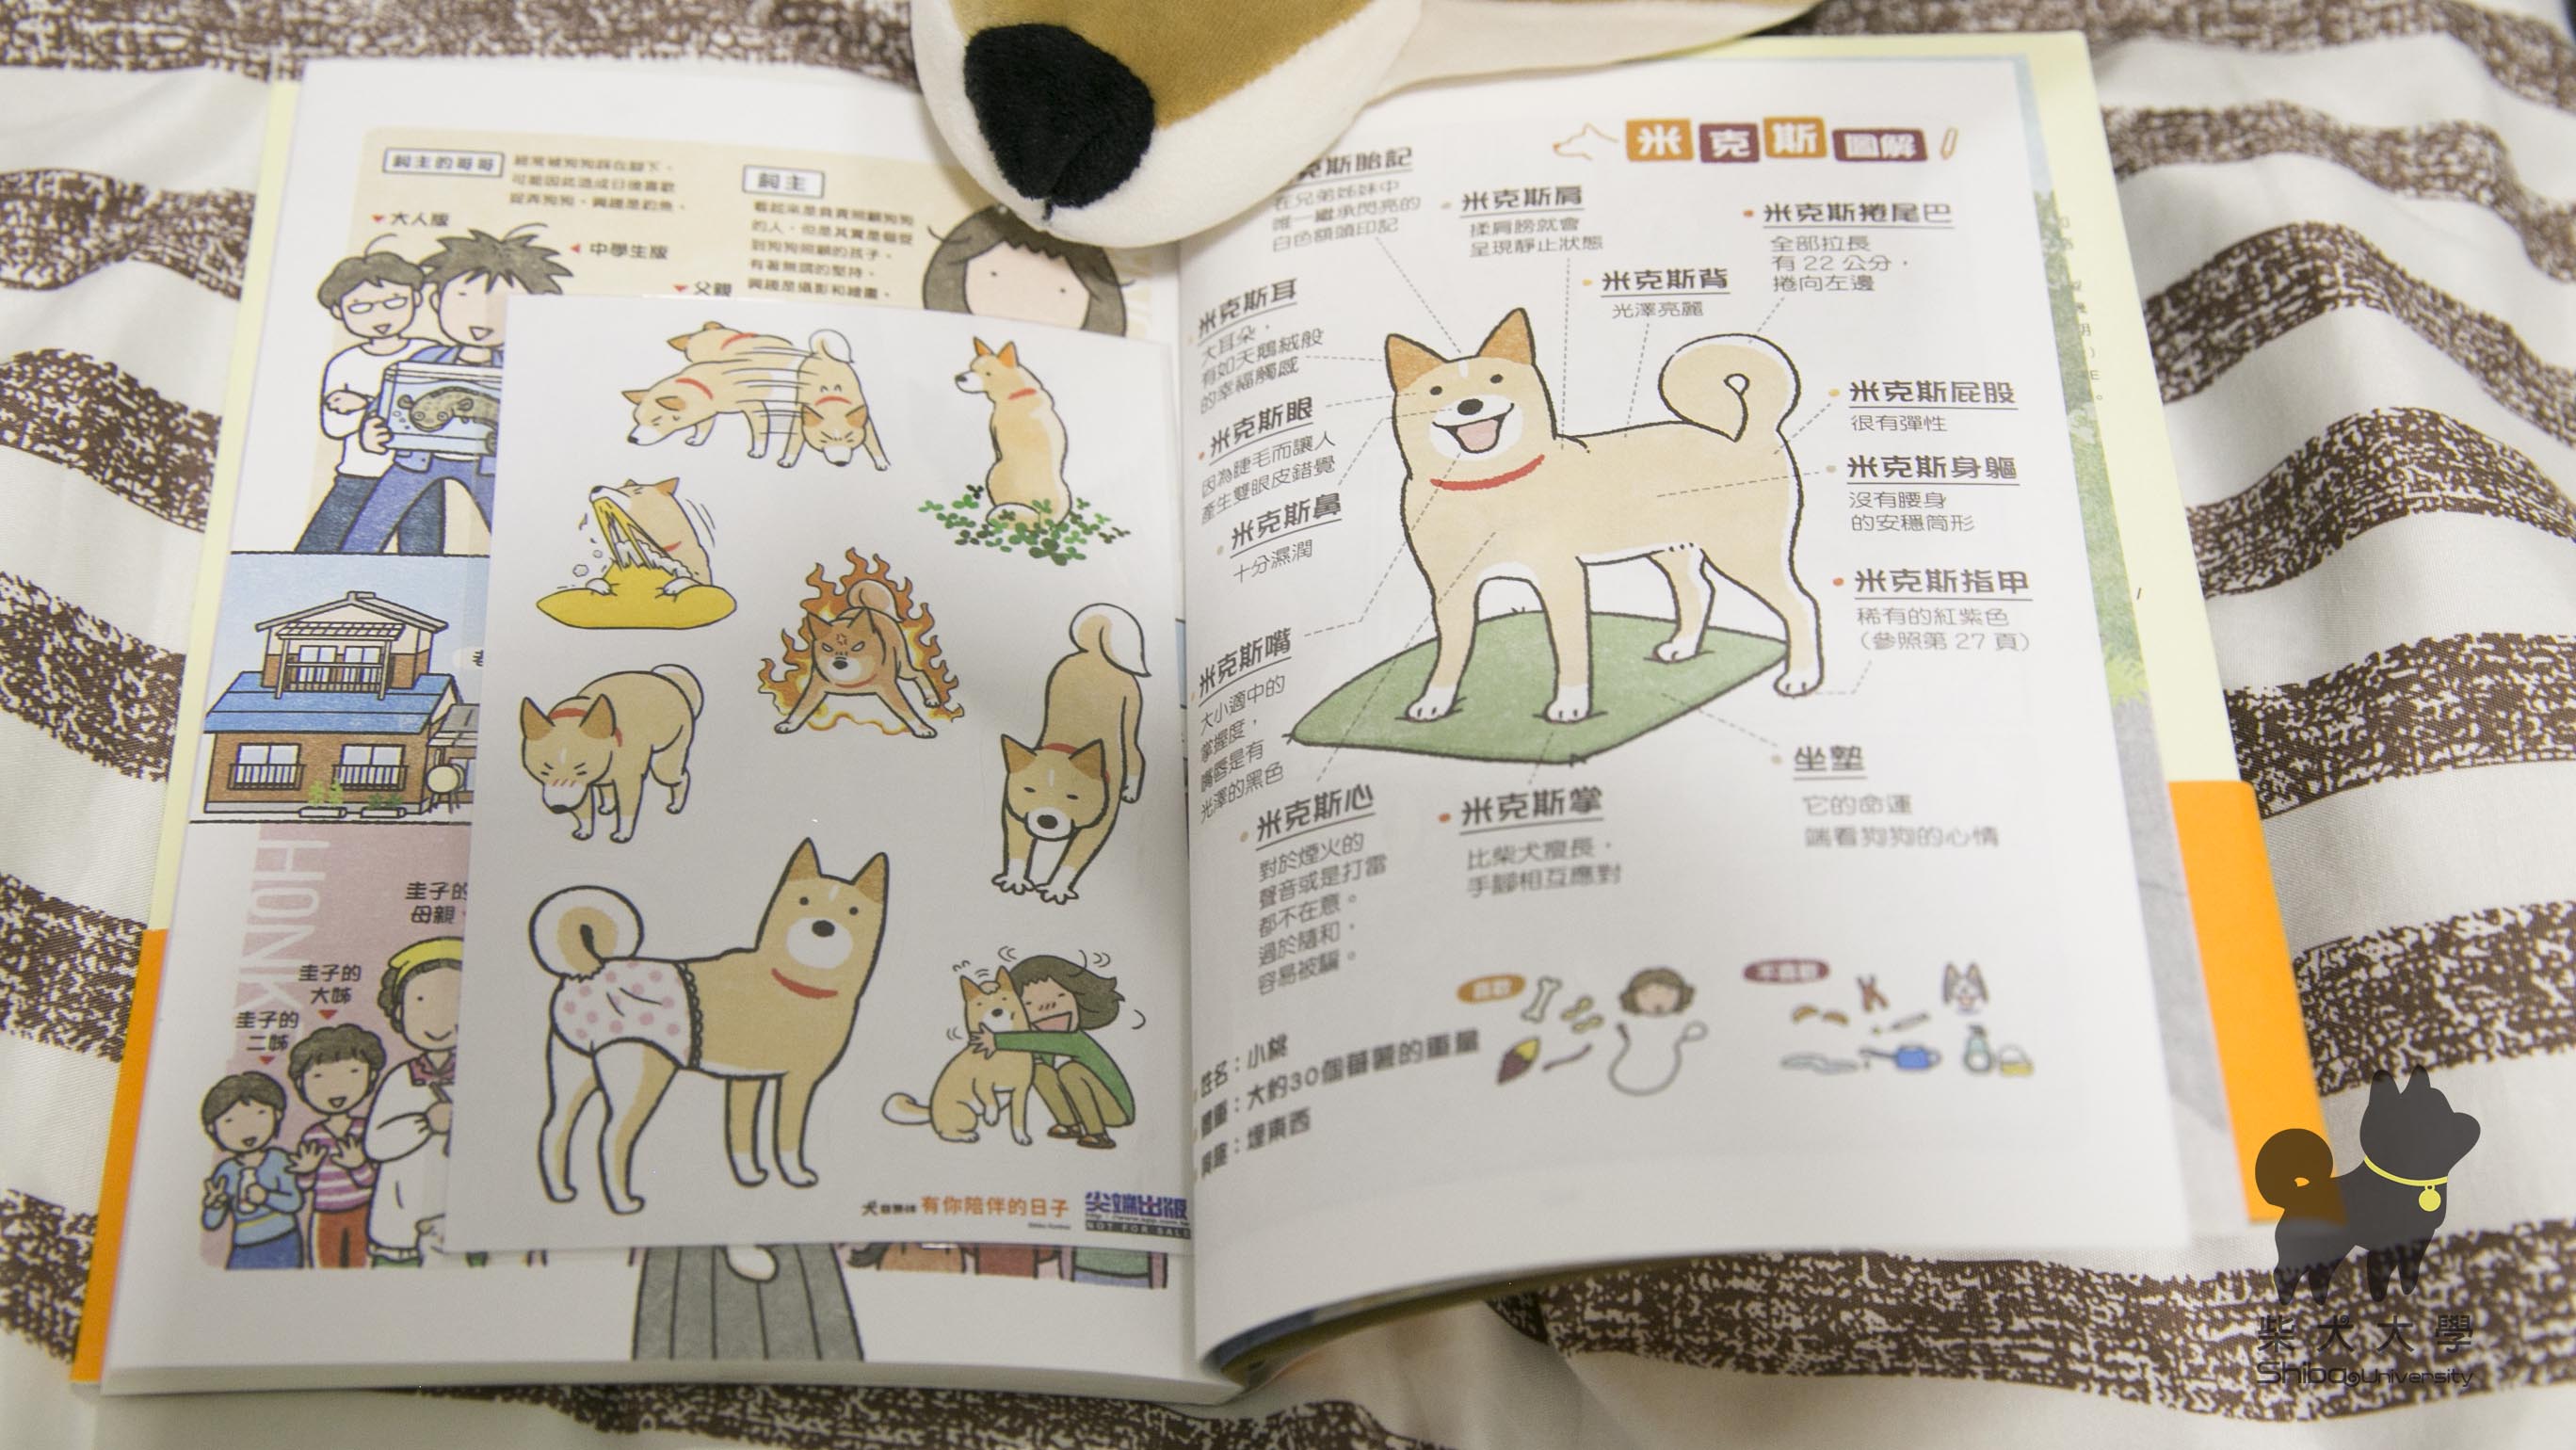 飼主的哥哥
經常被狗狗踩在腳下，
可能因此造成日後喜歡
捉弄狗狗。興趣是釣魚。
大人版
中學生版
父親
飼主
看起來是負責照顧狗狗
的人，但是其實是個受
到狗狗照顧的孩子。
有著無謂的堅持。
興趣是攝影和繪畫。
HONK
圭子的
母親
圭子的
大姊
圭子的
二姊
有你陪伴的日子
尖端出版
NOT FOR SALE
米克斯圖解
克斯胎記
在兄弟姊妹中
唯一繼承閃亮的
白色額頭印記
米克斯肩
揉肩膀就會
呈現靜止狀態
米克斯背
光澤亮麗
米克斯捲尾巴
全部拉長
有 22 公分，
捲向左邊
米克斯耳
大耳朵，
有如天鵝絨般
的幸福觸感
米克斯眼
因為睫毛而讓人
產生雙眼皮錯覺
米克斯鼻
十分濕潤
米克斯嘴
大小適中的
掌握度，
嘴唇是有
光澤的黑色
米克斯屁股
很有彈性
米克斯身軀
沒有腰身
的安穩筒形
米克斯指甲
稀有的紅紫色
（參照第 27 頁）
坐墊
它的命運
端看狗狗的心情
米克斯心
對於煙火的
聲音或是打雷
都不在意。
過於隨和，
容易被騙。
米克斯掌
比柴犬瘦長，
手腳相互應對
喜歡
不喜歡
姓名：小桃
體重：大約30個番薯的重量
興趣：埋東西
柴犬大學
Shiba University